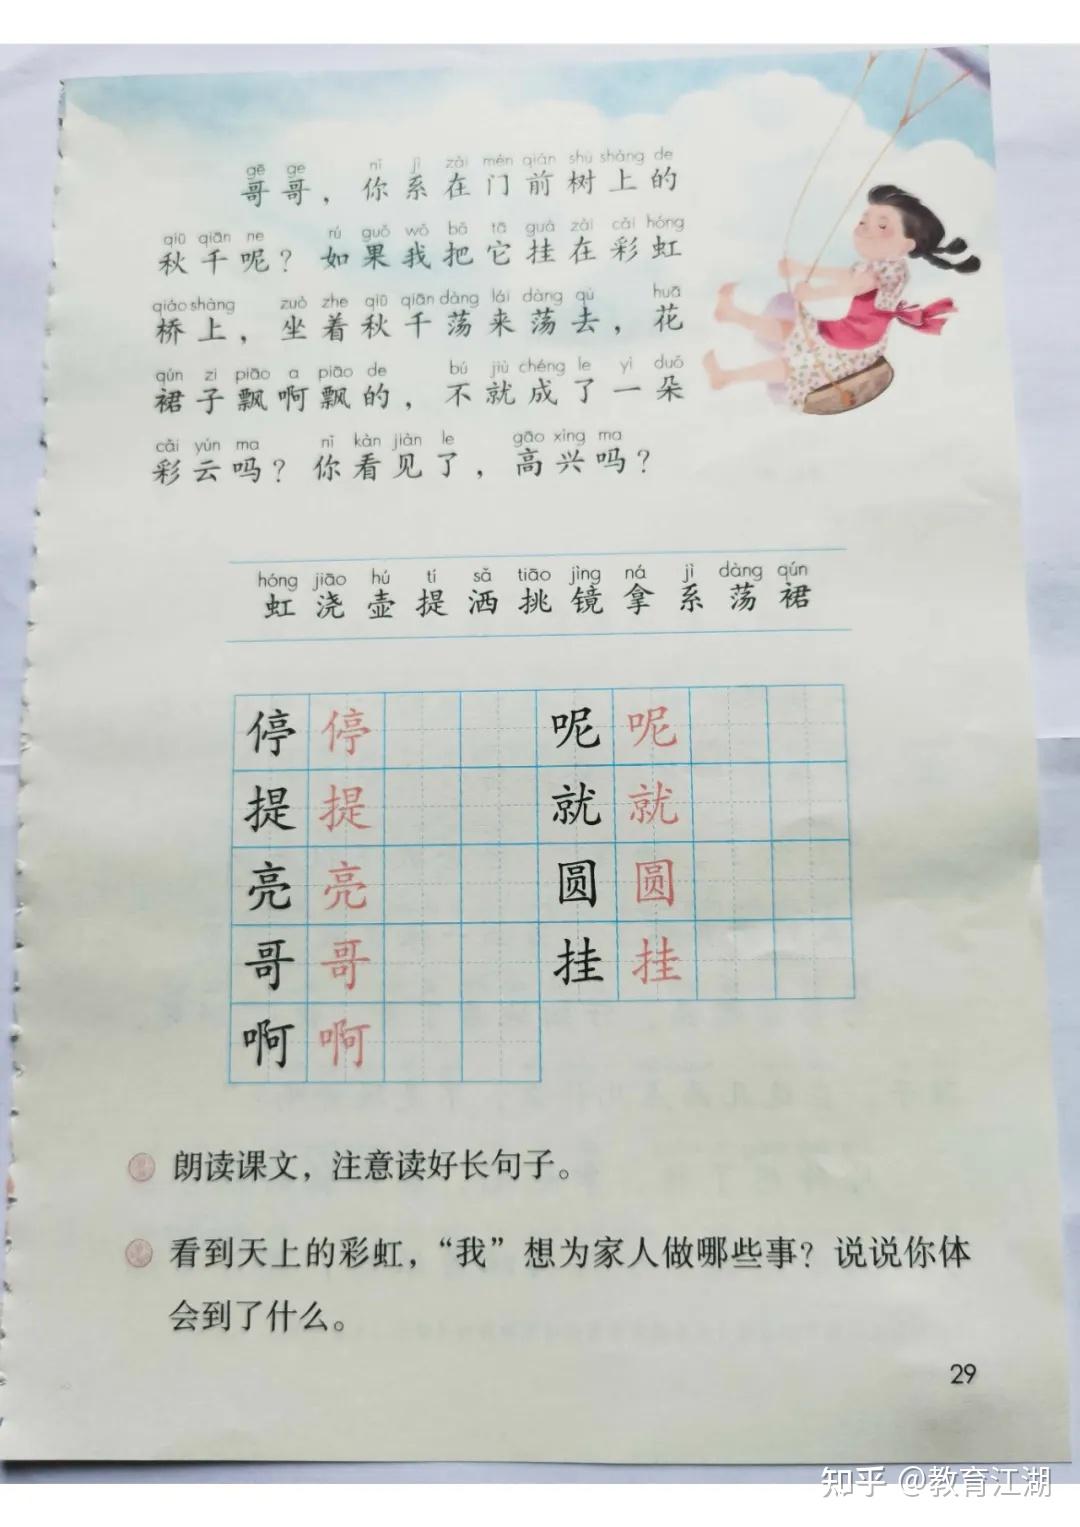 gē ge nǐ jì zài mén qián shù shàng de
哥哥，你系在门前树上的
qiū qiān ne rú guǒ wǒ bǎ tā guà zài cǎi hóng
秋千呢？如果我把它挂在彩虹
qiáo shàng zuò zhe qiū qiān dàng lái dàng qù huā
桥上，坐着秋千荡来荡去，花
qún zi piāo a piāo de bú jiù chéng le yì duǒ
裙子飘啊飘的，不就成了一朵
cǎi yún ma nǐ kàn jiàn le gāo xìng ma
彩云吗？你看见了，高兴吗？
hóng jiāo hú tí sǎ tiāo jìng ná jì dàng qún
虹 浇 壶 提 洒 挑 镜 拿 系 荡 裙
停 停 呢 呢
提 提 就 就
亮 亮 圆 圆
哥 哥 挂 挂
啊 啊
朗读课文，注意读好长句子。
看到天上的彩虹，“我”想为家人做哪些事？说说你体
会到了什么。
29
知乎 @教育江湖